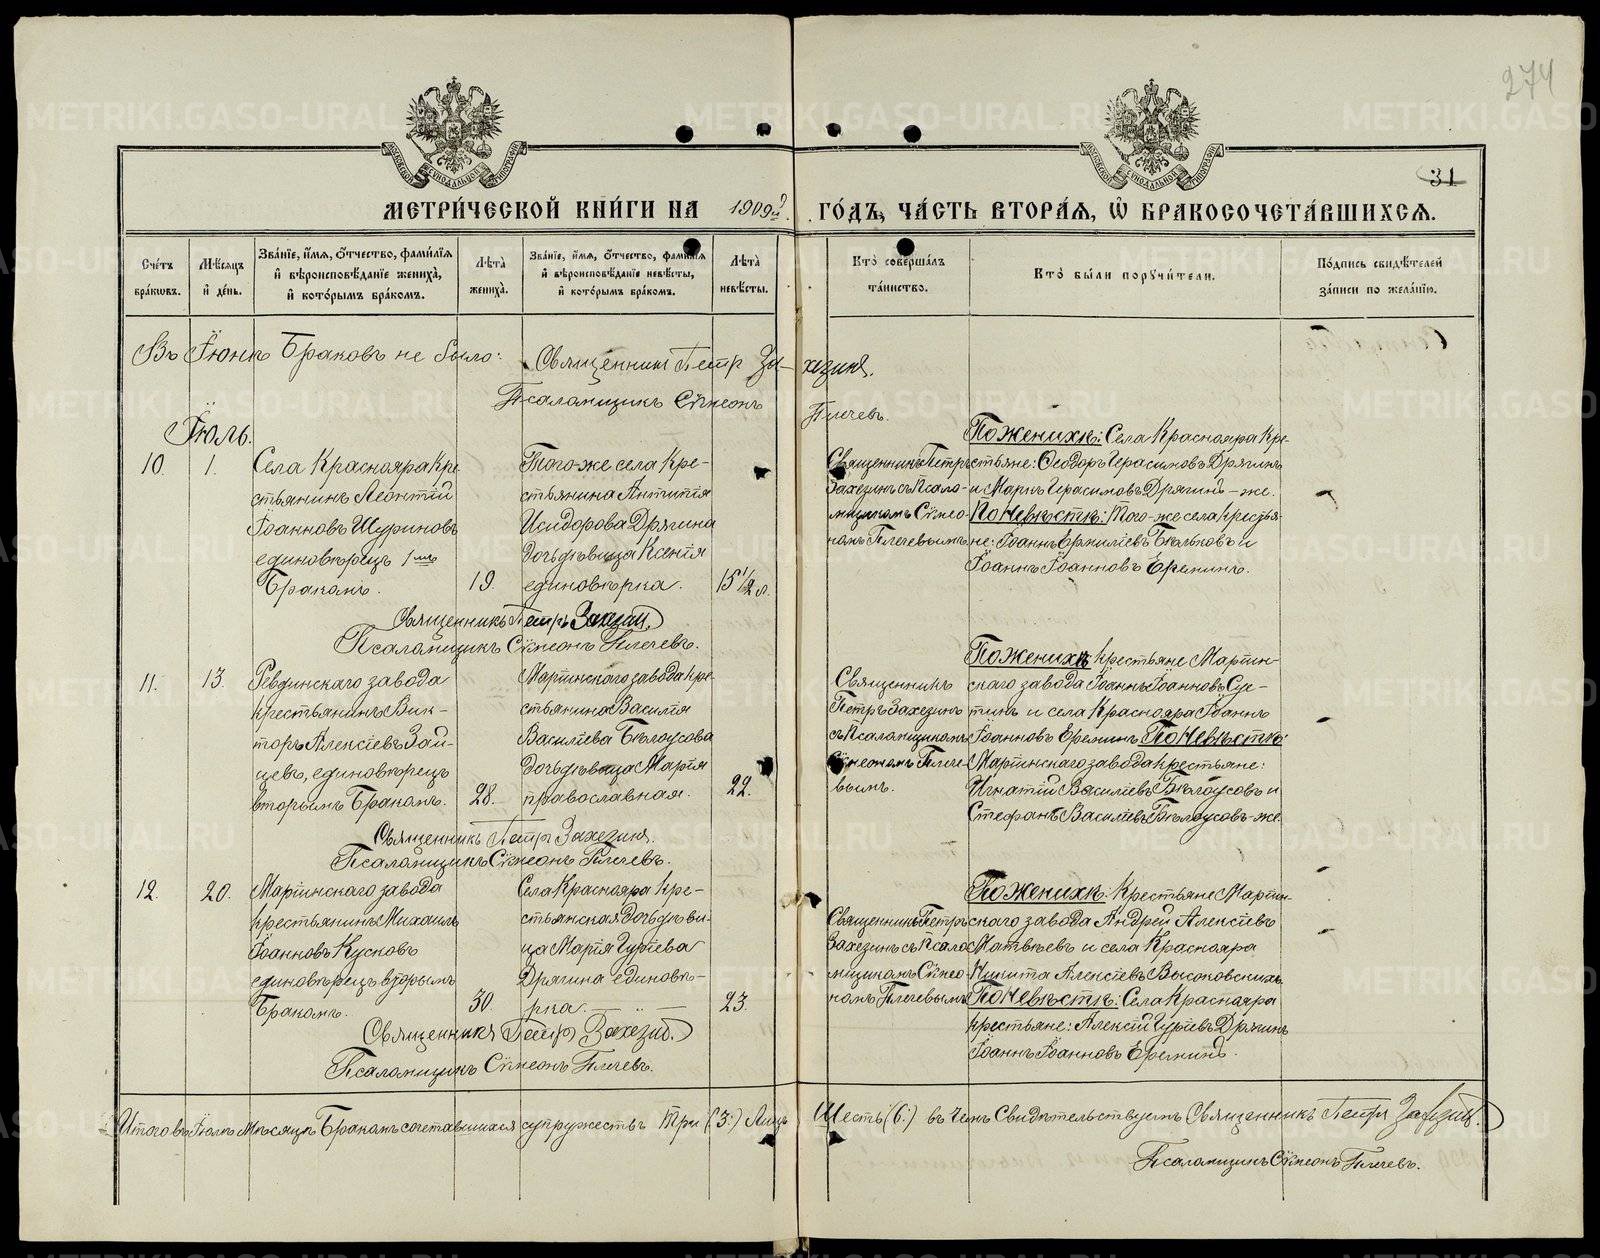 274
31
МЕТРИ́ЧЕСКОЙ КНИ́ГИ НА 1909й ГО́ДЪ, ЧА́СТЬ ВТОРА́Я, Ѽ БРАКОСОЧЕТА́ВШИХСЯ.
Сче́тъ бра́кѡвъ.
Мѣ́сяцъ и҆ де́нь.
Зва́нїе, и҆́мя, ѻ҆́тчество, фами́лїя и҆ вѣроисповѣ́данїе жениха̀, и҆ кото́рымъ бра́комъ.
Лѣ́та жениха̀.
Зва́нїе, и҆́мя, ѻ҆́тчество, фами́лїя и҆ вѣроисповѣ́данїе невѣ́сты, и҆ кото́рымъ бра́комъ.
Лѣ́та невѣ́сты.
Кто̀ соверша́лъ та́инство.
Кто̀ бы́ли порꙋчи́тели.
По́дпись свидѣ́телей за́писи по жела́нїю.
Въ Іюнѣ Браковъ не было:
Священникъ Петр Захезинъ.
Псаломщикъ Сѵмеонъ Плечевъ.
Іюль.
10.
1.
Села Краснояра кре-
стьянинъ Леонтій
Іоанновъ Шуриновъ
единовѣрецъ 1мъ
Бракомъ.
19.
Того-же села кре-
стьянина Антипія
Исидорова Дрягина
дочь дѣвица Ксенія
единовѣрка.
15 1/2 л.
Священникъ Петръ
Захезинъ съ Псало-
мщикомъ Сѵмео-
номъ Плечевымъ
По женихѣ: Села Краснояра Кре-
стьяне: Ѳеодоръ Герасимовъ Дрягинъ
и Маркъ Герасимовъ Дрягинъ-же.
По невѣстѣ: Того-же села крестья-
не: Іоаннъ Ермиліевъ Бѣльковъ и
Іоаннъ Іоанновъ Ереминъ.
Священникъ Петръ Захезин
Псаломщикъ Сѵмеонъ Плечевъ.
11.
13.
Ревдинскаго завода
крестьянинъ Вик-
торъ Алексіевъ Зай-
цевъ, единовѣрецъ
вторымъ Бракомъ.
28.
Маріинскаго завода кре-
стьянина Василія
Василіева Бѣлоусова
дочь дѣвица Марія
православная.
22.
Священникъ
Петръ Захезинъ
съ Псаломщикомъ
Сѵмеономъ Плече-
вымъ.
По женихѣ крестьяне Маріин-
скаго завода Іоаннъ Іоанновъ Сус-
тинъ и села Краснояра Іоаннъ
Іоанновъ Ереминъ По невѣстѣ
Маріинскаго завода крестьяне:
Игнатій Василіевъ Бѣлоусовъ и
Стефанъ Василіевъ Бѣлоусовъ-же.
Священникъ Петръ Захезинъ.
Псаломщикъ Сѵмеонъ Плечевъ.
12.
20.
Маріинскаго завода
крестьянинъ Михаилъ
Іоанновъ Кусковъ
единовѣрецъ вторымъ
Бракомъ.
30.
Села Краснояра кре-
стьянская дочь дѣви-
ца Марія Гуріева
Дрягина единовѣ-
рка.
23.
Священникъ Петръ
Захезинъ съ Псало
мщикомъ Сѵмео-
номъ Плечевымъ
По женихѣ: Крестьяне Маріин-
скаго завода Андрей Алексіевъ
Матвѣевъ и села Краснояра
Никита Алексіевъ Высоковскихъ
По невѣстѣ: Села Краснояра
крестьяне: Алексій Гуріевъ Дрягинъ
Іоаннъ Іоанновъ Ереминъ.
Священникъ Петръ Захезин.
Псаломщикъ Сѵмеонъ Плечевъ.
Итого въ Іюлѣ Мѣсяцѣ Бракомъ сочетавшихся супружествъ Три (3.) Лицъ Шесть (6.) въ Чемъ Свидѣтельствуемъ Священникъ Петръ Захезин.
Псаломщикъ Сѵмеонъ Плечевъ.